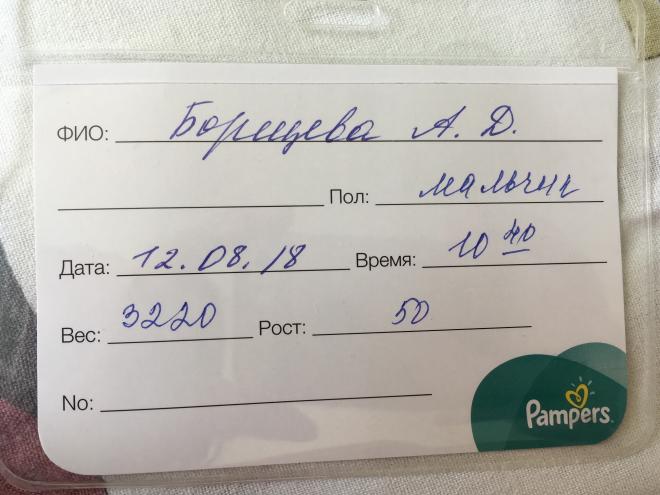 ФИО: Борщева А. Д.
Пол: мальчик
Дата: 12.08.18 Время: 10 40
Вес: 3220 Рост: 50
No:
Pampers